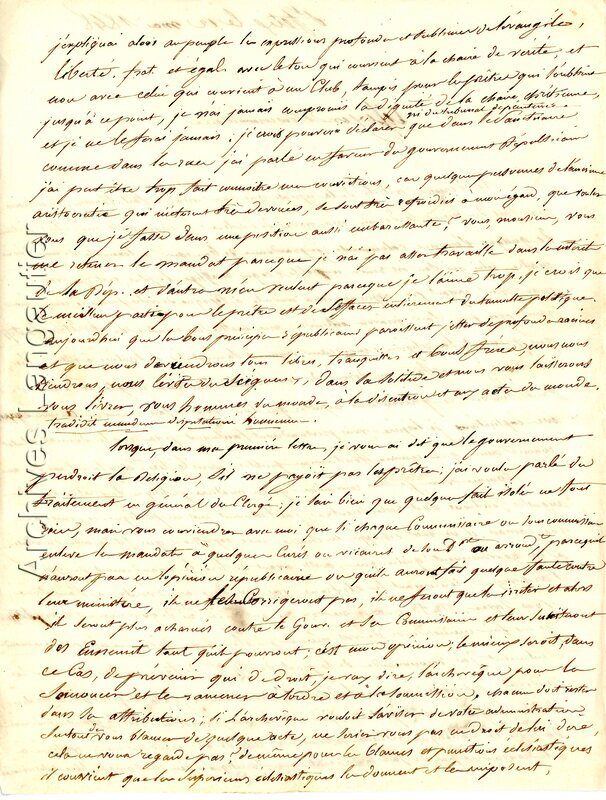 j'expliquai alors au peuple les expressions profondes et sublimes de l'évangile,
liberté, frat. et égal. avec le ton qui convient à la chaire de vérité, et
non avec celui qui convient à un Club, tanpis pour le prêtre qui s'oublie
jusqu'à ce point, je n'ai jamais compromis la dignité de la chaire chrétienne,
ni du tribunal de pénitence
et je ne le ferai jamais; je crois pouvoir déclarer que dans le Sanctuaire
comme dans la rue j'ai parlé en faveur du gouvernement Républicain
j'ai peut être trop fait connoitre mes convictions, car quelques personnes de l'ancienne
aristocratie qui m'étoient très dévouées, se sont très refroidies à mon égard, que voulez
vous que je fasse dans une position aussi embarrassante? vous monsieur, vous
me retenez le mandat parceque je n'ai pas assez travaillé dans l'intérêt
de la Rép. et d'autres m'en veulent parceque je l'aime trop, je crois que
le meilleur parti pour le prêtre est de s'effacer entièrement du tumulte politique.
aujourd'hui que les bons principes républicains paroissent jetter de profondes racines
et que nous deviendrons tous libres, tranquilles et bons frères, nous nous
tiendrons, nous lévites du Seigneur, dans la solitude et nous vous laisserons
vous livrer, vous hommes du monde, à la discution et aux actes du monde,
tradidit mundum disputationi hominum.
lorsque, dans ma première lettre, je vous ai dit que le gouvernement
perdroit la Religion, s'il ne payoit pas les prêtres; j'ai voulu parler du
traitement en général du Clergé; je sais bien que quelques faits isolés ne font
rien, mais vous conviendrez avec moi que si chaque Commissaire ou sous commissaire
enlève les mandats à quelques Curés ou vicaires de son Dt ou arrondt, parcequ'ils
n'auront pas eu l'opinion républicaine ou qu'ils auront fait quelque faute contre
leur ministère, il ne les corrigeront pas, ils ne feront que les irriter et alors
ils seront plus acharnés contre le Gouv. et ses Commissaires et leur susciteront
des Ennemis tant qu'il pourront, c'est mon opinion; le mieux seroit, dans
ce Cas, de prévenir qui de droit, je veux dire, l'archevêque pour les
admonester et les ramener à l'ordre et à la soumission, chacun doit rester
dans ses attributions; si l'archevêque vouloit s'aviser de votre administration
surtout de vous blamer de quelque acte, ne seriez vous pas en droit de lui dire,
cela ne vous regarde pas? de même pour les blames et punitions eclésiastiques
il convient que les Supérieurs eclésiastiques les donnent et les imposent,
Archives Lengautier